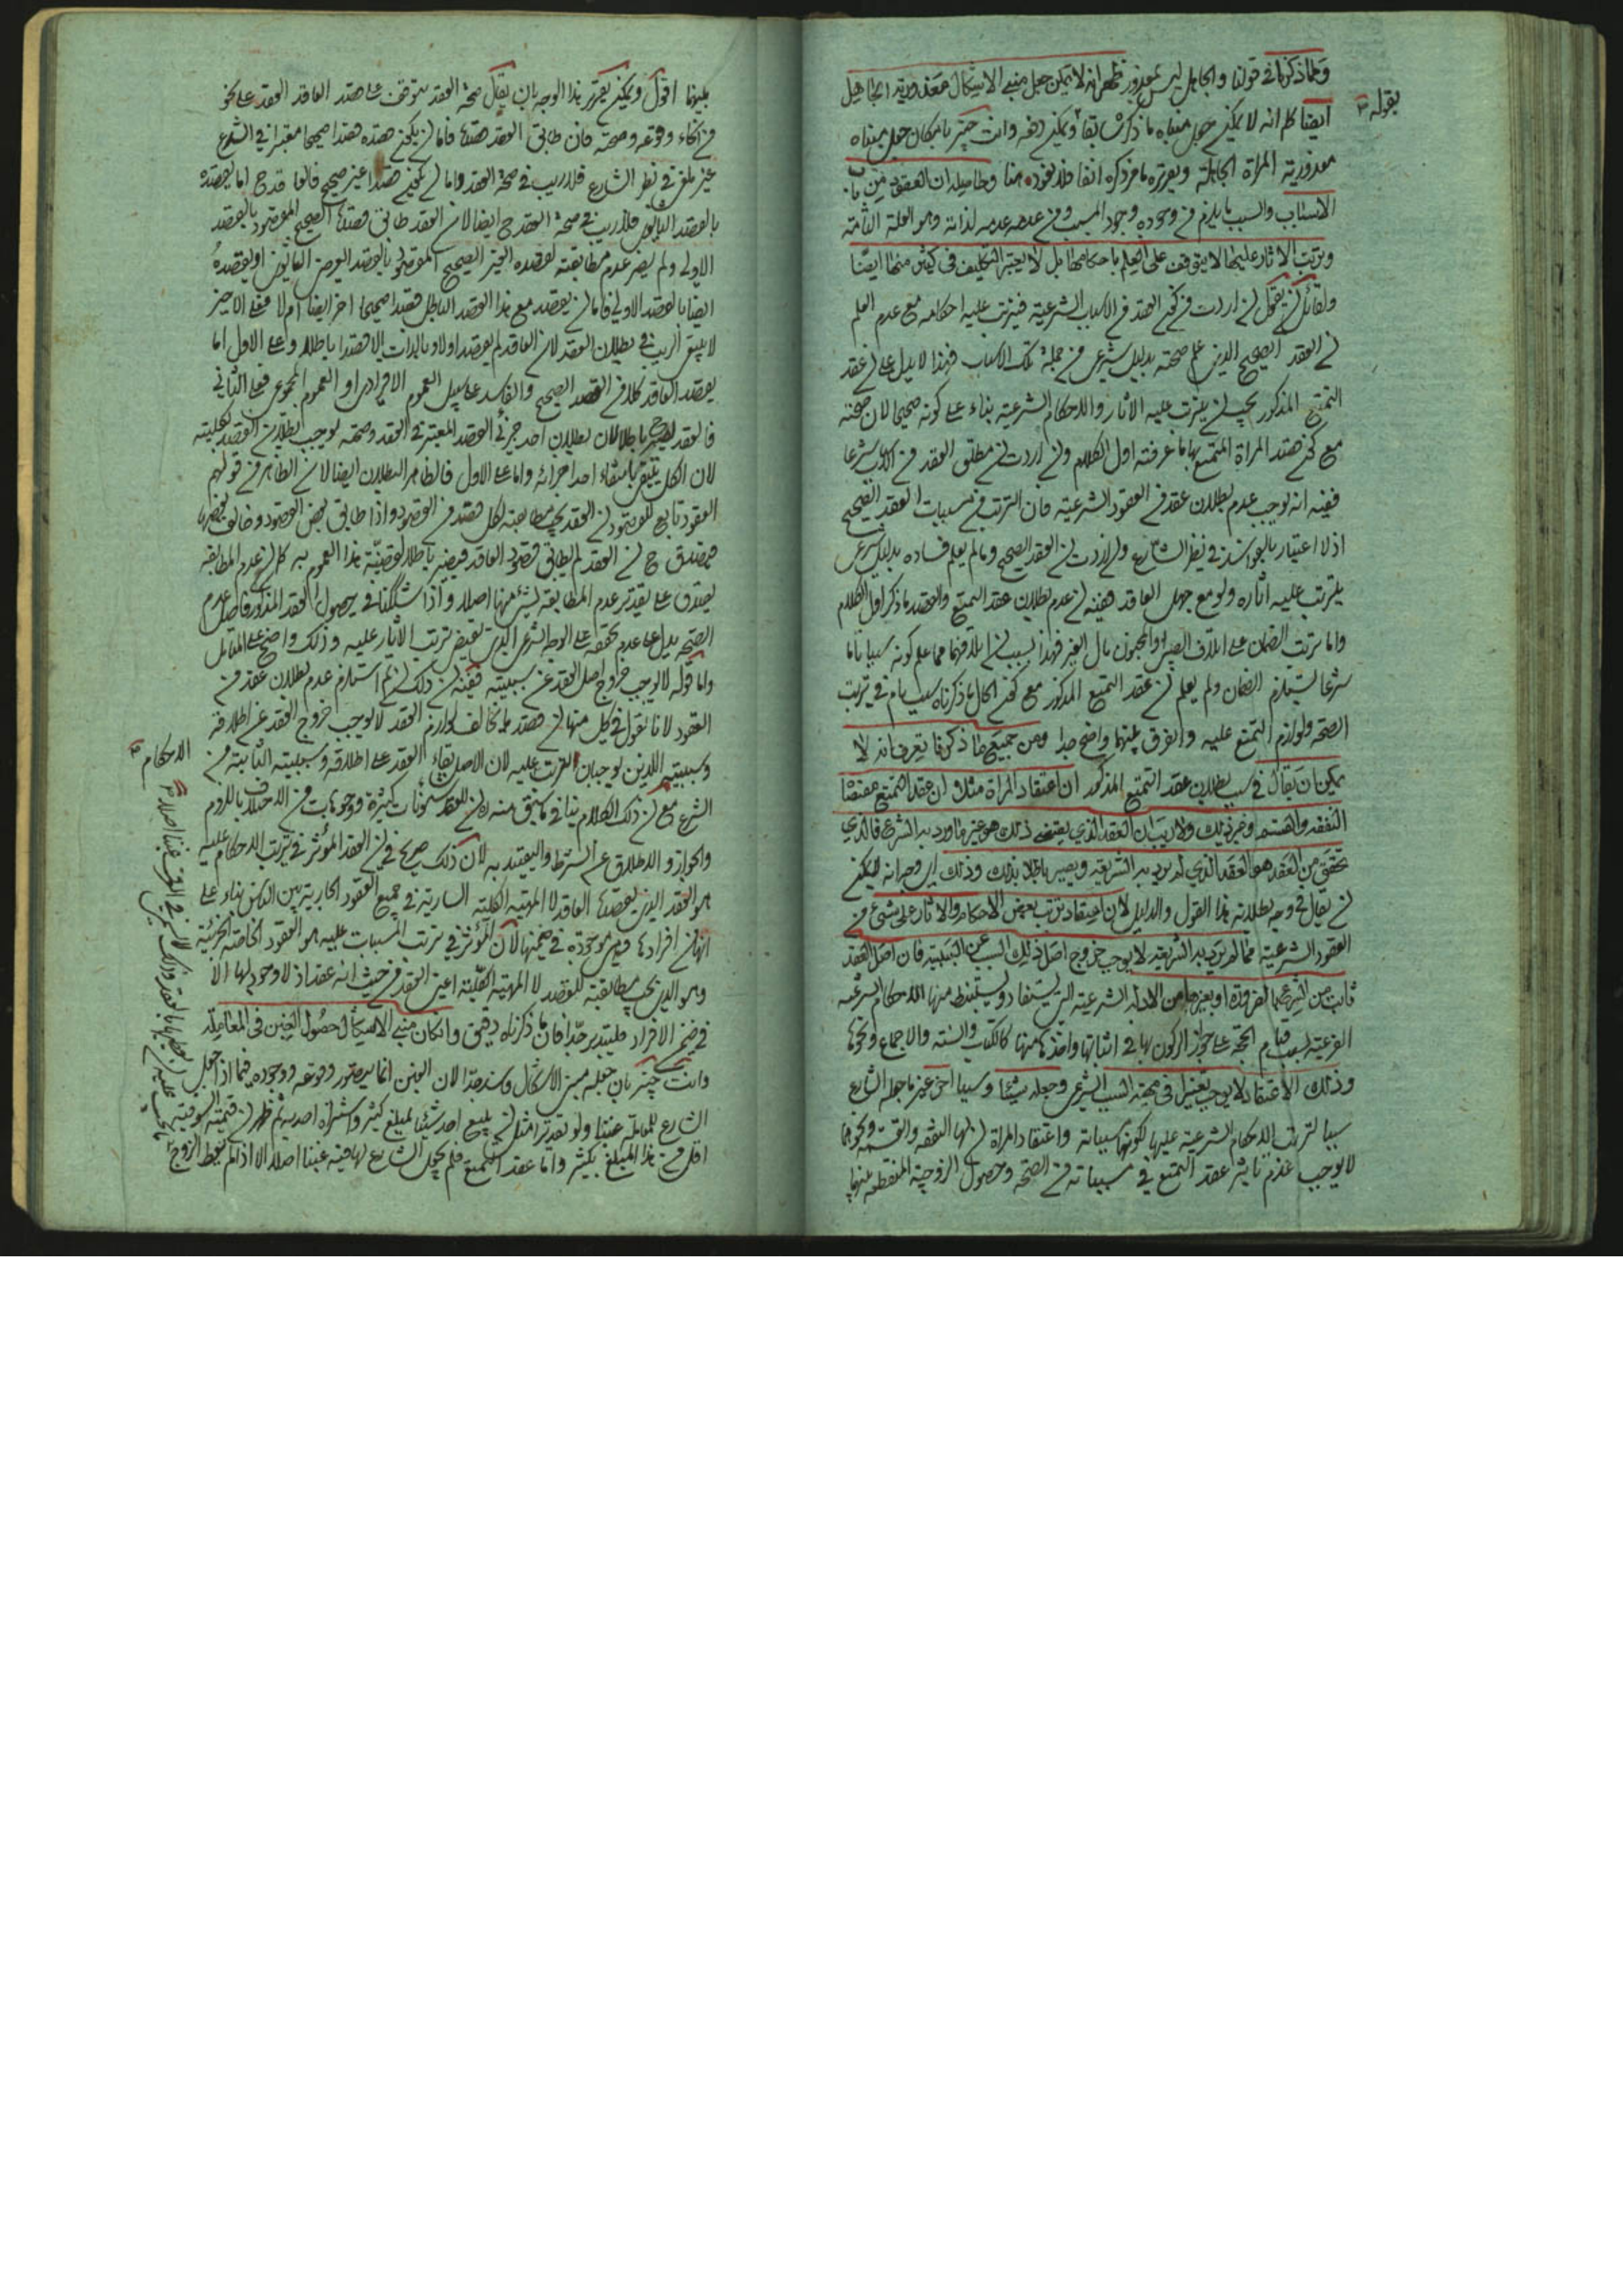 وكما ذكرنا في قولنا والجاهل ليس بمعذور ظهر انه لا يمكن جعل منبع الاشكال معذورية الجاهل
بقوله
ايضا كلم انه لا يمكن جعل مبناه ما ذكر سابقا ويمكن دفعه وانت خبير بامكان جعل مبناه
معذورية المراة الجاهلة ويقرره ما مر ذكره انفا فلا نعود هنا وحاصله ان العقود من باب
الاسباب والسبب ما يلزم من وجوده وجود المسبب ومن عدمه عدمه لذاته وهو العلة التامة
وترتب الاثار عليها لا يتوقف على العلم باحكامها بل لا يعتبر التكليف في كثير منها ايضا
ولقائل ان يقول ان اردت من كون العقد من الاسباب الشرعية فيترتب عليه احكامه مع عدم العلم
ان العقد الصحيح الذي علم صحته بدليل شرعي من جملة تلك الاسباب فهذا لا يدل على ان عقد
التمتع المذكور يجب ان يترتب عليه الاثار والاحكام الشرعية بناء على كونه صحيحا لان صحته
مع كون قصد المراة المتمتع بها ما عرفته اول الكلام وان اردت ان مطلق العقد من الاسباب شرعا
ففيه انه يوجب عدم بطلان عقد من العقود الشرعية فان الترتب من مسببات العقد الصحيح
اذ لا اعتبار بالفاسد في نظر الشارع وان اردت ان العقد الصحيح وما لم يعلم فساده بدليل شرعي
يترتب عليه اثاره ولو مع جهل العاقد ففيه ان عدم بطلان عقد التمتع والقصد ما ذكر اول الكلام
واما ترتب الضمان على اتلاف الصبي والمجنون مال الغير فهذا بسبب ان اتلافهما مما علم كونه سببا تاما
شرعا يستلزم الضمان ولم يعلم ان عقد التمتع المذكور مع كون الحال ما ذكرناه سبب تام في ترتب
الصحة ولوازم التمتع عليه والفرق بينهما واضح جدا ومن جميع ما ذكرنا يعرف انه لا
يمكن ان يقال في سبب بطلان عقد التمتع المذكور ان اعتقاد المراة مثلا ان عقد التمتع مقتضا
النفقة والقسمة وغير ذلك ولا ريب ان العقد الذي يقتضي ذلك هو غير ما ورد به الشرع فالذي
تحقق من العقد هو العقد الذي لم يرد به الشريعة ويصير باطلا بذلك وذلك اي وجه انه لا يمكن
ان يقال في وجه بطلانه هذا القول والدليل لان اعتقاد ترتب بعض الاحكام والاثار على شيء من
العقود الشرعية مما لم يرد به الشريعة لا يوجب خروج اصل ذلك السبب عن السببية فان اصل العقد
ثابت من الشرع بما لضرورة او بغيرها من الادلة الشرعية التي يستفاد ويستنبط منها الاحكام الشرعية
الفرعية بسبب قيام الحجة على جواز الركون بها في اثباتها واخذها منها كالكتاب والسنة والاجماع ونحوها
وذلك الاعتقاد لا يوجب تغييرا في مهية السبب الشرعي وجعله شيئا وسببا اخر غير ما جعله الشارع
سببا لترتب الاحكام الشرعية عليها لكونها مسبباته واعتقاد المراة ان لها النفقة والقسمة ونحوهما
لا يوجب عدم تاثير عقد التمتع في مسبباته من الصحة وحصول الزوجية المنقطعة بينها
بينهما اقول ويمكن تقرير هذا الوجه بان يقال صحة العقد يتوقف على قصد العاقد العقد على نحو
من انحاء وقوعه وصحته فان طابق العقد قصدها فاما ان يكون قصده قصدا صحيحا معتبرا في الشرع
غير ملغى في نظر الشارع فلا ريب في صحة العقد واما ان يكون قصدا غير صحيح فالعاقد ح اما يقصده
بالقصد الثانوي فلا ريب في صحة العقد ح ايضا لان العقد طابق قصدها الصحيح المقصود بالقصد
الاولي ولم يضر عدم مطابقته لقصده الغير الصحيح المقصود بالقصد العرضي الثانوي او يقصده
ايضا بالقصد الاولي فاما ان يقصد مع هذا القصد الباطل قصدا صحيحا اخر ايضا ام لا فعلى الاخير
لا يبقى الريب في بطلان العقد لان العاقد لم يقصد اولا وبالذات الا قصدا باطلا وعلى الاول اما
يقصد العاقد كلا من القصد الصحيح والفاسد على سبيل العموم الافرادي او العموم المجموعي فعلى الثاني
فالعقد يصير باطلا لان بطلان احد جزئي القصد المعتبر في العقد وصحته يوجب بطلان القصد بكليته
لان الكل ينتفي بانتفاء احد اجزائه واما على الاول فالظاهر البطلان ايضا لان الظاهر من قولهم
العقود تابع للقصود ان العقد يجب مطابقته لكل قصد من القصود واذا طابق بعض القصود وخالف بعضها
فيصدق ح ان العقد لم يطابق قصود العاقد فيصير باطلا لقضية هذا العموم به كما ان عدم المطابقة
يصدق على تقدير عدم المطابقة لشيء منها اصلا واذا شككنا في حصول العقد المذكور فاصل عدم
الصحة يدل على عدم تحققه على الوجه الشرعي الذي يقتضي ترتب الاثار عليه وذلك واضح على المتامل
واما قوله لا يوجب خروج اصل العقد عن سببيته ففيه ان ذلك ان تم استلزم عدم بطلان عقد من
العقود لانا نقول في كل منها ان قصد ما يخالف لوازم العقد لا يوجب خروج العقد عن اطلاقه
وسببيته اللذين يوجبان الترتب عليه لان الاصل بقاء العقد على اطلاقه وسببيته الثابتة من
الاحكام
الشرع مع ان ذلك الكلام ينافي ما سبق منه ان للعقد شؤونات كثيرة ووجوها شتى من الاختلاف باللزوم
والجواز والاطلاق عن الشرط والتقييد به لان ذلك صريح في ان العقد المؤثر في ترتب الاحكام عليه
هو العقد الذي يقصده العاقد لا المهية الكلية السارية في جميع العقود الجارية بين الناس بناء على
انها من افرادها وهي موجودة في ضمنها لان المؤثر في ترتب المسببات عليه هو العقود الخاصة الجزئية
وهو الذي يجب مطابقته للقصد لا المهية الكلية اعني العقد من حيث انه عقد اذ لا وجود لها الا
في ضمن الافراد فليتدبر جدا فان ما ذكرناه دقيق وان كان منبع الاشكال حصول الغبن في المعاملة
وانت خبير بان جعله مبنى الاشكال وسند جدا لان الغبن انما يتصور وقوعه ووجوده فيما اذا جعل
الشارع للمعاملة غبنا ولو تقديرا مثل ان يبيع احد شيئا بمبلغ كثير واشتراه احد ثم ظهر ان قيمته السوقية
اقل من هذا المبلغ بكثير واما عقد التمتع فلم يجعل الشارع لها فيه غبنا اصلا الا اذا لم يعط الزوج